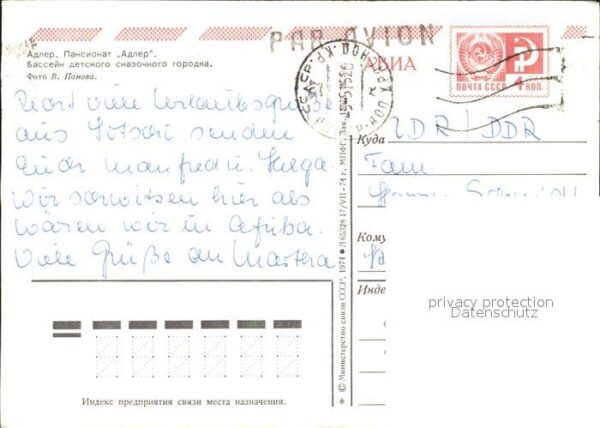 PAR AVION
Адлер, Пансионат „Адлер“.
Бассейн детского сказочного городка.
Фото В. Панова.
АВИА
ПОЧТА СССР 4 КОП.
viele Urlaubsgrüße
aus Sotschi senden
Euch Manfred u. Helga.
Wir schwitzen hier als
wären wir in Afrika.
Viele Grüße an Martha
Куда
DDR / DDR
Fam
Кому
Инде
privacy protection
Datenschutz
Индекс предприятия связи места назначения.
* © Министерство связи СССР, 1974 ● Л 65328 17/VII-74 г. МПФГ, Зак.